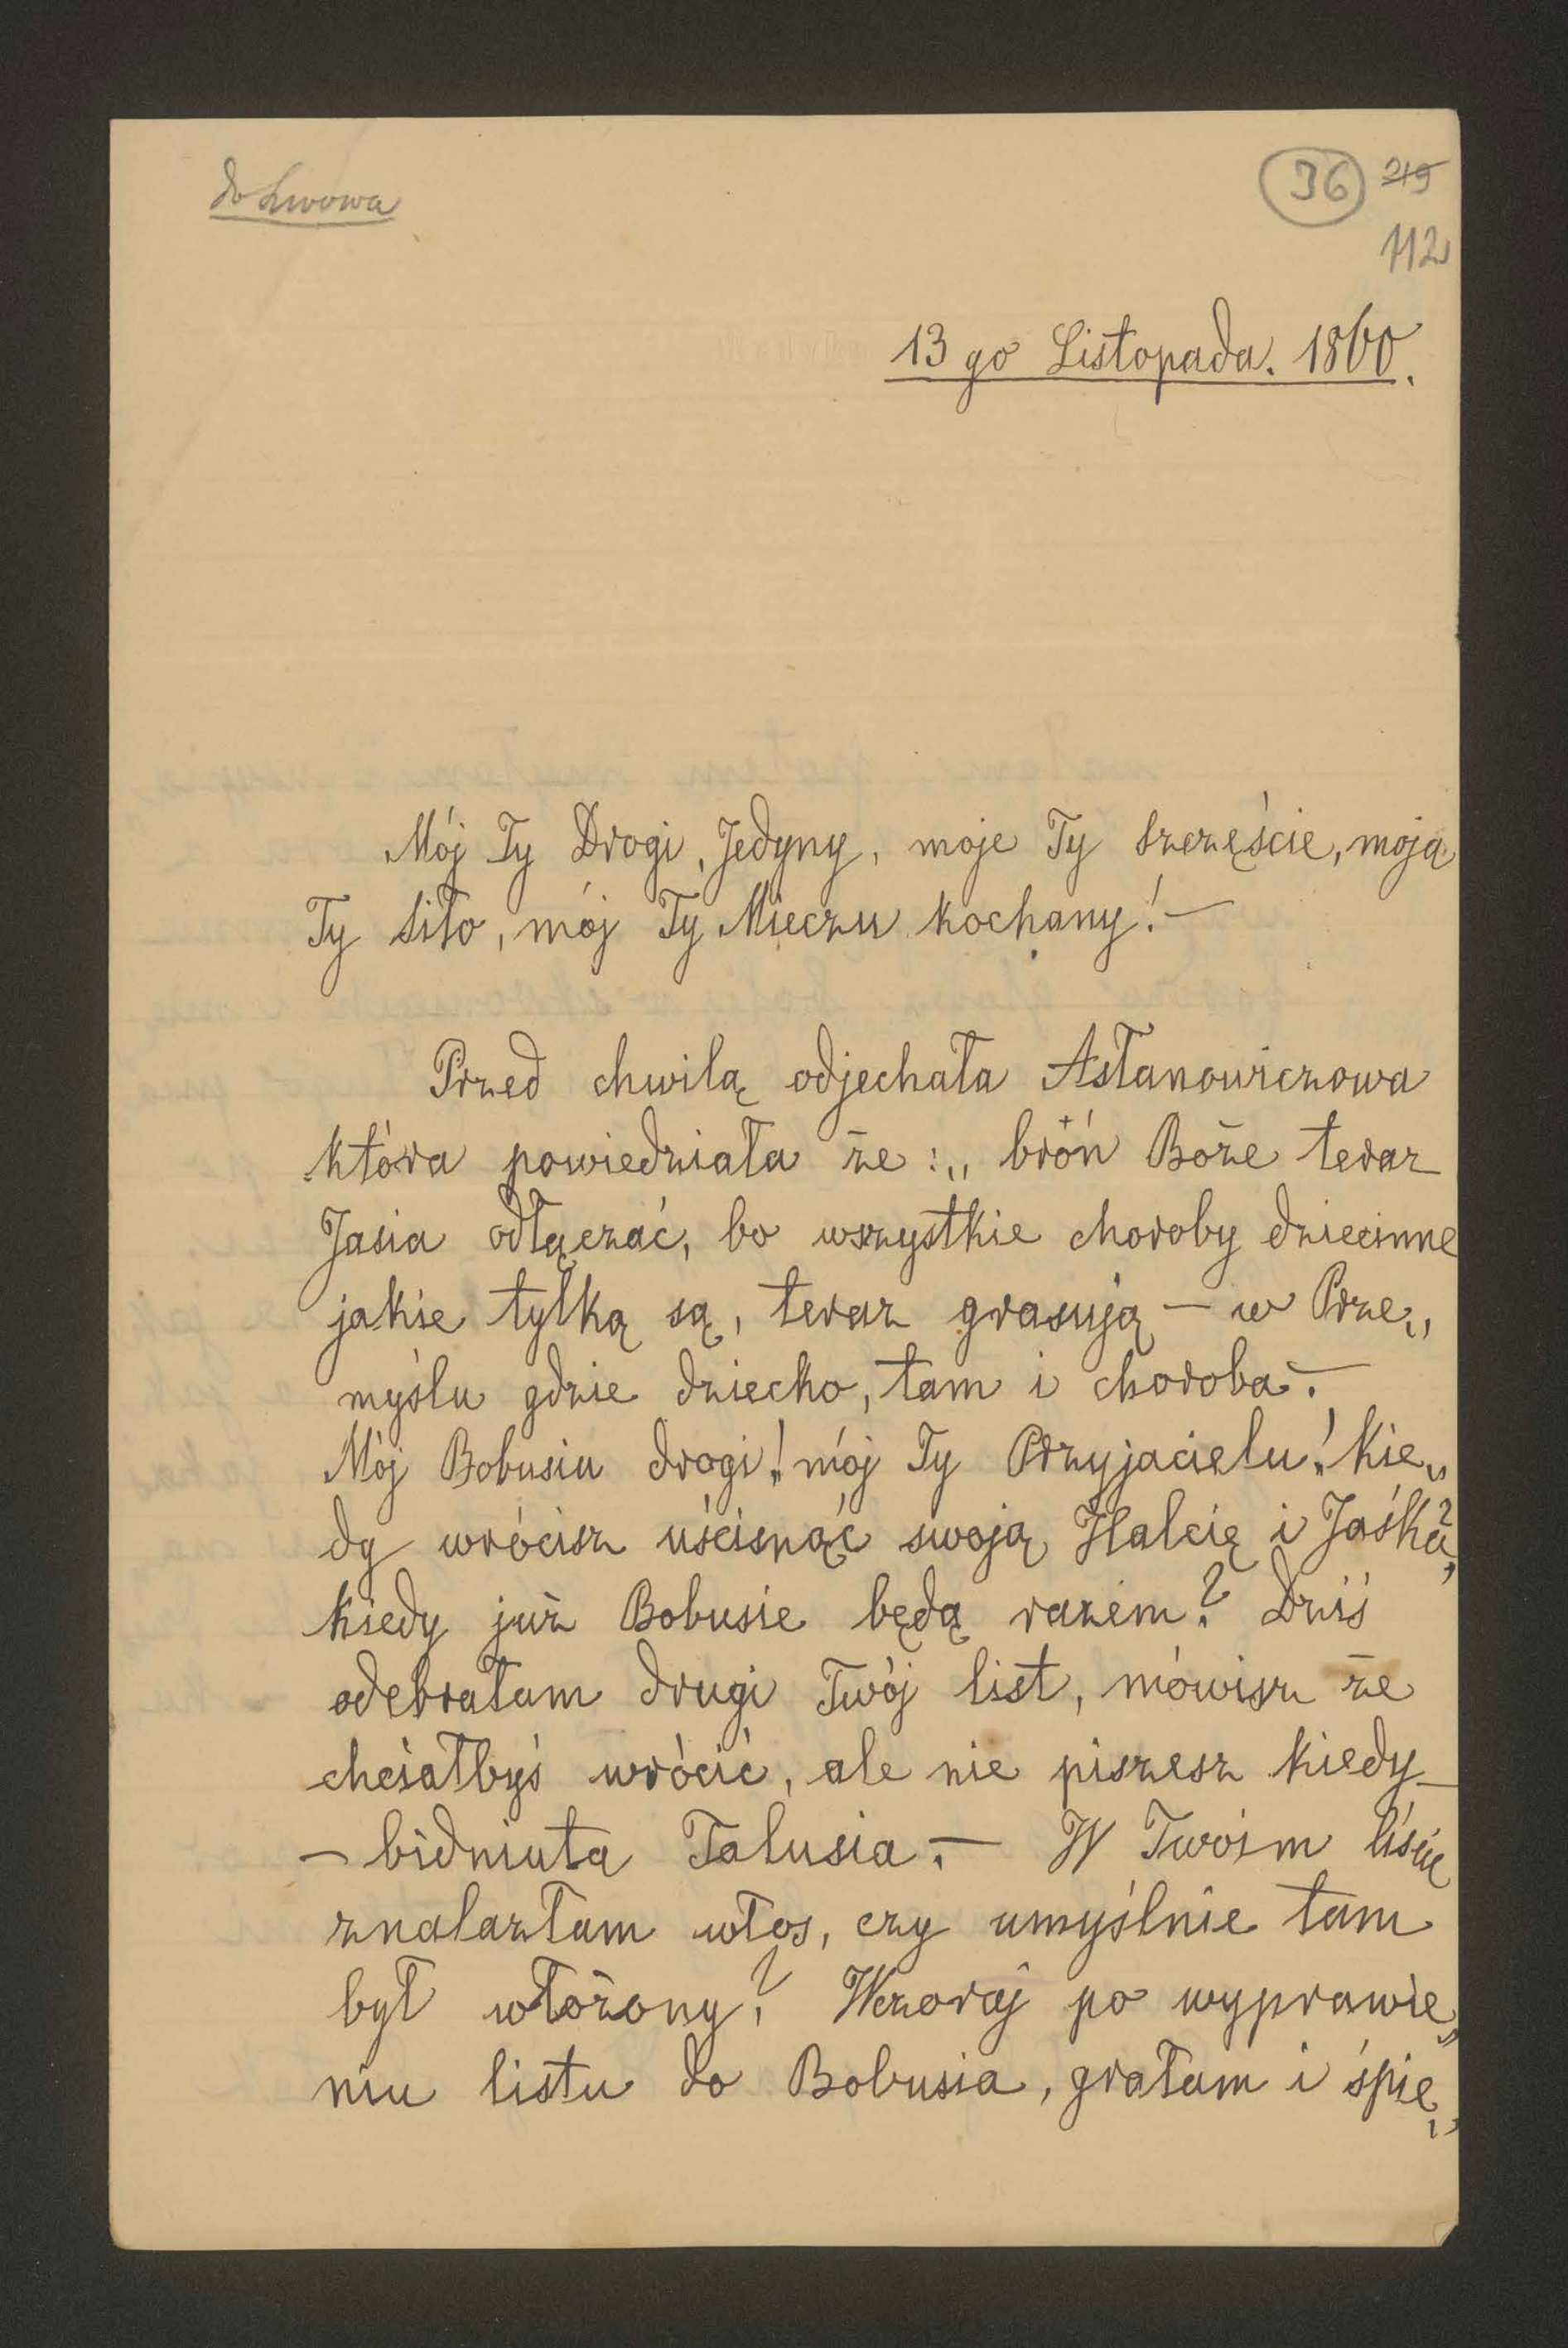 do Lwowa
36 219
112
13 go Listopada. 1860.
Mój Ty Drogi, Jedyny, moje Ty szczęście, moja
Ty siło, mój Ty Mieczu kochany! —
Przed chwilą odjechała Asłanowiczowa
która powiedziała że: „broń Boże teraz
Jasia odłączać, bo wszystkie choroby dziecinne
jakie tylką są, teraz grasują — w Prze„
myślu gdzie dziecko, tam i choroba. —
Mój Bobusiu drogi! mój Ty Przyjacielu! Kie„
dy wrócisz uścisnąć swoją Halcię i Jaśka?,
kiedy już Bobusie będą razem? Dziś
odebrałam drugi Twój list, mówisz że
chciałbyś wrócić, ale nie piszesz kiedy —
— bidniuta Talusia. — W Twoim liście
znalazłam włos, czy umyślnie tam
był włożony? Wczoraj po wyprawie„
niu listu do Bobusia, grałam i śpie„